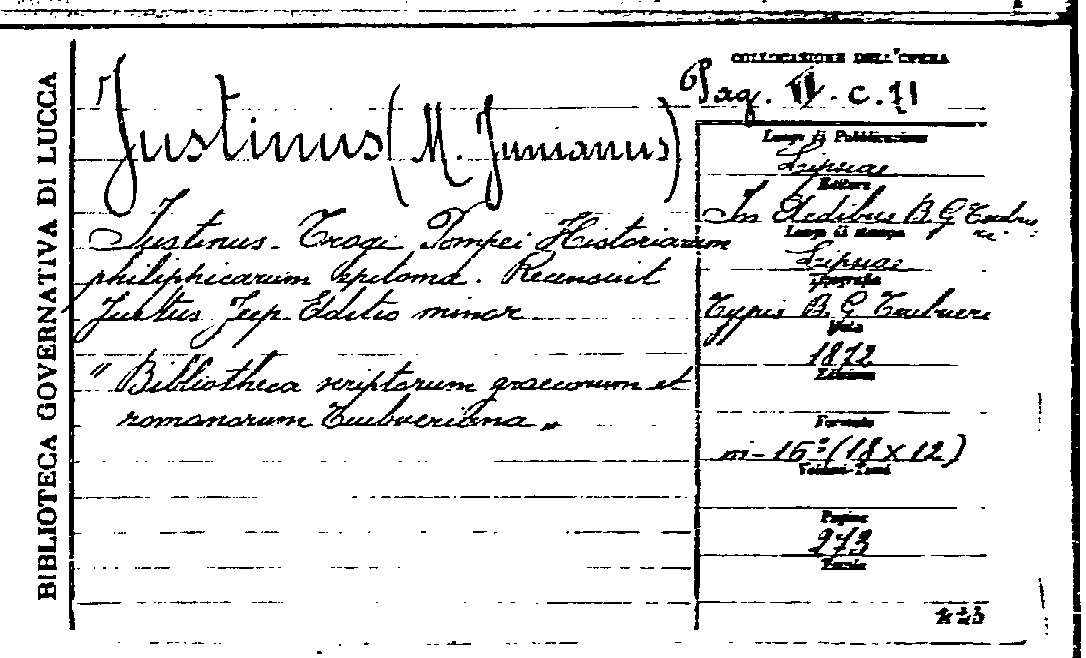 BIBLIOTECA GOVERNATIVA DI LUCCA
COLLOCAZIONE DELL'OPERA
Pag. II. c. 11
Justinus (M. Junianus)
Justinus. Trogi Pompei Historiarum
philiphicarum epitoma. Recensuit
Justus Jeep Editio minor
"Bibliotheca scriptorum graecorum et
romanorum Teubneriana"
Luogo di Pubblicazione
Lipsiae
Editore
In Aedibus B. G. Teubneri
Luogo di stampa
Lipsiae
Tipografia
Typis B. G. Teubneri
Data
1872
Edizione
Formato
in-16º (18 x 12)
Volumi-Tomi
Pagine
273